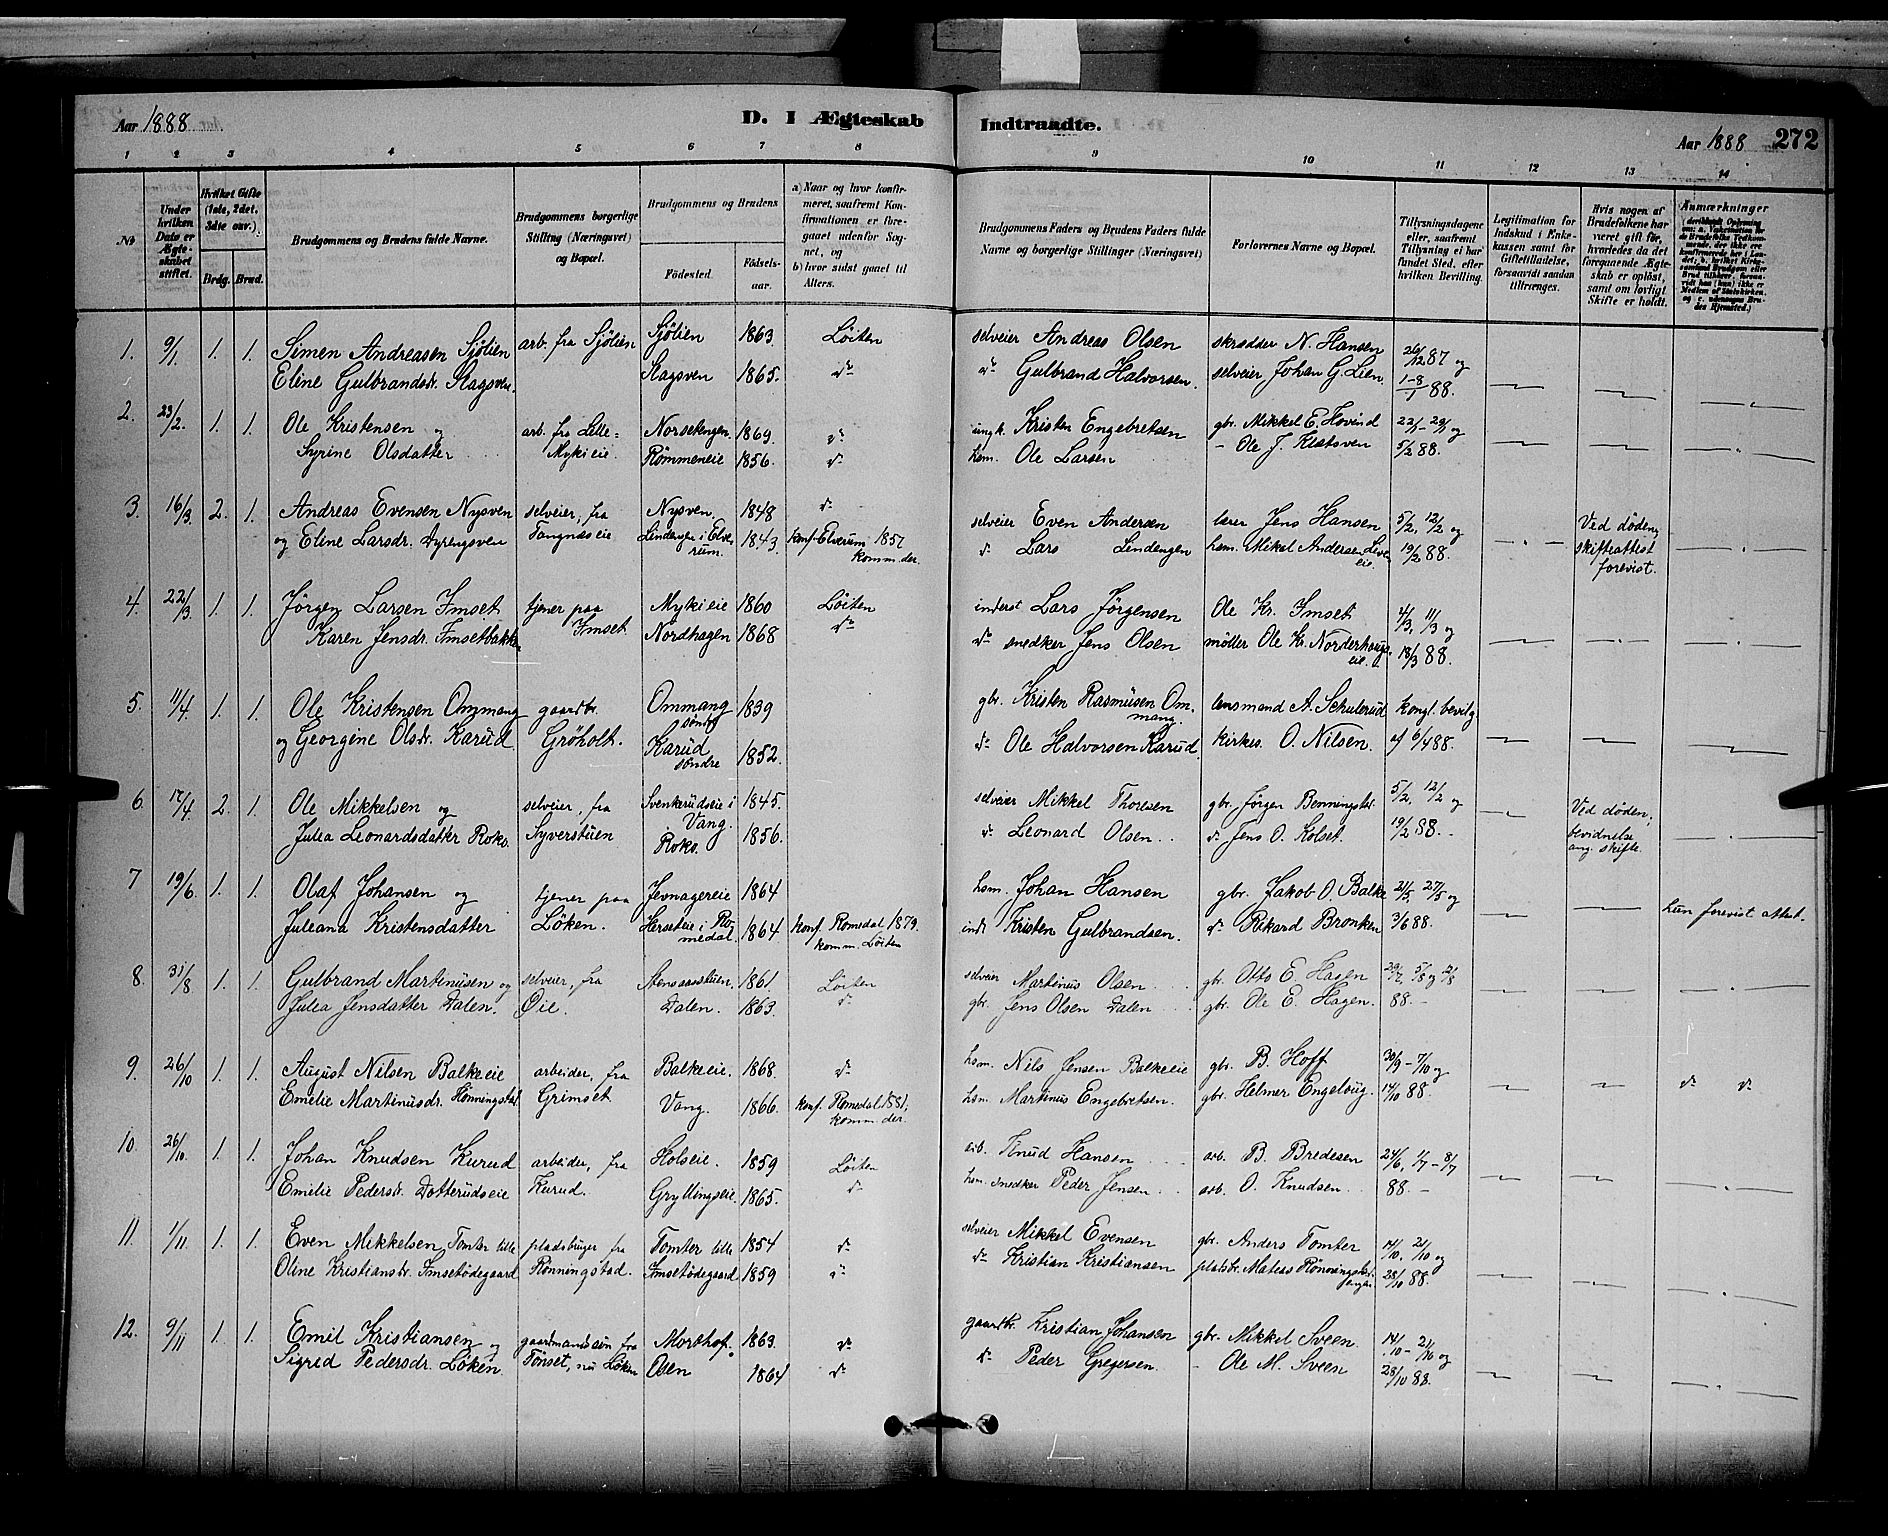 Aar 1888.
D. I Ægteskab Indtraadte.
Aar 1888
272
1 2 3 4 5 6 7 8 9 10 11 12 13 14
No
Under hvilken Dato er Ægteskabet stiftet.
Hvilket Gifte (1ste, 2det, 3die osv.).
Brdg. Brud.
Brudgommens og Brudens fulde Navne.
Brudgommens borgerlige Stilling (Næringsvei) og Bopæl.
Brudgommens og Brudens
Födested.
Födselsaar.
a) Naar og hvor konfirmeret, saafremt Konfirmationen er foregaaet udenfor Sognet, og
b) hvor sidst gaaet til Alters.
Brudgommens Faders og Brudens Faders fulde Navne og borgerlige Stillinger (Næringsvei)
Forlovernes Navne og Bopæl.
Tillysningsdagene eller, saafremt Tillysning ei har fundet Sted, efter hvilken Bevilling.
Legitimation for Indskud i Enkekassen samt for Giftetilladelse, forsaavidt saadan tiltrænges.
Hvis nogen af Brudefolkene har været gift för, hvorledes da det foregaaende Ægteskab er oplöst, samt om lovligt Skifte er holdt.
Anmærkninger
1. 9/1 1. 1. Simen Andreasen Sjölien arb. fra Sjölien Sjölien 1863 Löiten selveier Andreas Olsen skrædder N. Hansen 26/12 87 og
Eline Gulbrandsdr. Slagsven. Slagsven 1865. do do Gulbrand Halvorsen. selveier Johan G. Lien. 1-8/1 88.
2. 23/2. 1. 1. Ole Kristensen og arb. fra Lille= Norsetengen. 1869. do ungk. Kristen Engebretsen gbr. Mikkel E. Hovind 22/1 - 29/1 og
Syrine Olsdatter Mykieie. Römmeneie 1856. do hsm. Ole Larsen - Ole J. Kletsven 5/2 88.
3. 16/3. 2. 1. Andreas Evensen Nysven selveier, fra Nysven. 1848 do selveier Even Andersen lærer Jens Hansen 5/2, 12/2 og Ved döden,
og Eline Larsdr. Dyrengsven Tangnæseie Lindengen i Elverum. 1843. konf. Elverum 1857 komm. der. do Lars Lindengen hsm. Mikel Andersen 19/2 88. skifteattest forevist.
4. 22/3. 1. 1. Jörgen Larsen Imset tjener paa Mykieie 1860 Löiten inderst Lars Jörgensen Ole Kr. Imset 4/3, 11/3 og
Karen Jensdr. Imsetbakken Imset Nordhagen 1868 do do snedker Jens Olsen möller Ole Kr. Norderhaugseie. 18/3 88.
5. 11/4. 1. 1. Ole Kristensen Ommang gaardbr. Ommang söndre 1839 gbr. Kristen Rasmusen Ommang. lensmand A. Schulerud kongl. bevilg.
og Georgine Olsdr. Karud Gröholt. Karud söndre 1852. do Ole Halvorsen Karud kirkes. O. Nilsen. af 6/4 88.
6. 17/4. 2. 1. Ole Mikkelsen og selveier, fra Svenkerudseie i Vang. 1845. selveier Mikkel Thoresen gbr. Jörgen Benningstad. 5/2, 12/2 og Ved döden;
Julea Leonardsdatter Roko. Syverstuen Roko. 1856. do Leonard Olsen do Jens O. Kolset. 19/2 88. bevidnelse ang. skifte.
7 19/6. 1. 1. Olaf Johansen og tjener paa Jevnagereie 1864 hsm. Johan Hansen gbr. Jakob O. Balke 21/5, 27/5 og hun forevist attest.
Juleana Kristensdatter Löken. Herseteie i Romedal. 1864 konf. Romedal 1879. komm. Löiten indr. Kristen Gulbrandsen. do Rikard Bronken 3/6 88.
8. 31/8. 1. 1. Gulbrand Martinusen og selveier, fra Stensaasstuen. 1861. Löiten selveier Martinus Olsen gbr. Otto E. Hagen 29/7, 5/8 og 12/8
Julea Jensdatter Dalen. Öie. Dalen. 1863. do gbr. Jens Olsen Dalen gbr. Ole E. Hagen. 88.
9. 26/10 1. 1. August Nilsen Balkeeie arbeider, fra Balkeeie. 1868. do hsm. Nils Jensen Balkeeie gbr. B. Hoff 30/9 - 7/10 og do do
Emelie Martinusdr. Hönningstad. Grimset Vang. 1866. konf. Romedal 1881, komm. der. hsm. Martinus Engebretsen. gbr. Helmer Engeloug. 14/10 88.
10. 26/10. 1. 1. Johan Knudsen Kurud arbeider, fra Holseie. 1859 Löiten arb. Knud Hansen arb. B. Bredesen 24/6, 1/7 - 8/7
Emilie Pedersdr. Dotterudseie Kurud. Gryllingseie. 1865. do hsm. snedker Peder Jensen. arb. O. Knudsen. 88.
11. 1/11. 1. 1. Even Mikkelsen Tomter lille pladsbruger fra Tomter lille 1854 do selveier Mikkel Evensen gbr. Anders Tomter 14/10, 21/10 og
Oline Kristiansdr. Imsetödegaard Rönningstad. Imsetödegaard 1859 do do Kristian Kristiansen pladsbr. Mateas Rönningstad 28/10 88.
12. 9/11 1. 1. Emil Kristiansen og gaardmandssön fra Morthof. 1863. do gaardbr. Kristian Johansen gbr. Mikkel Sveen 14/10 - 21/10 og
Sigrid Pedersdr. Löken. Tönset, nu Löken Osen 1864 do do Peder Gregersen. - Ole M. Sveen 28/10 88.